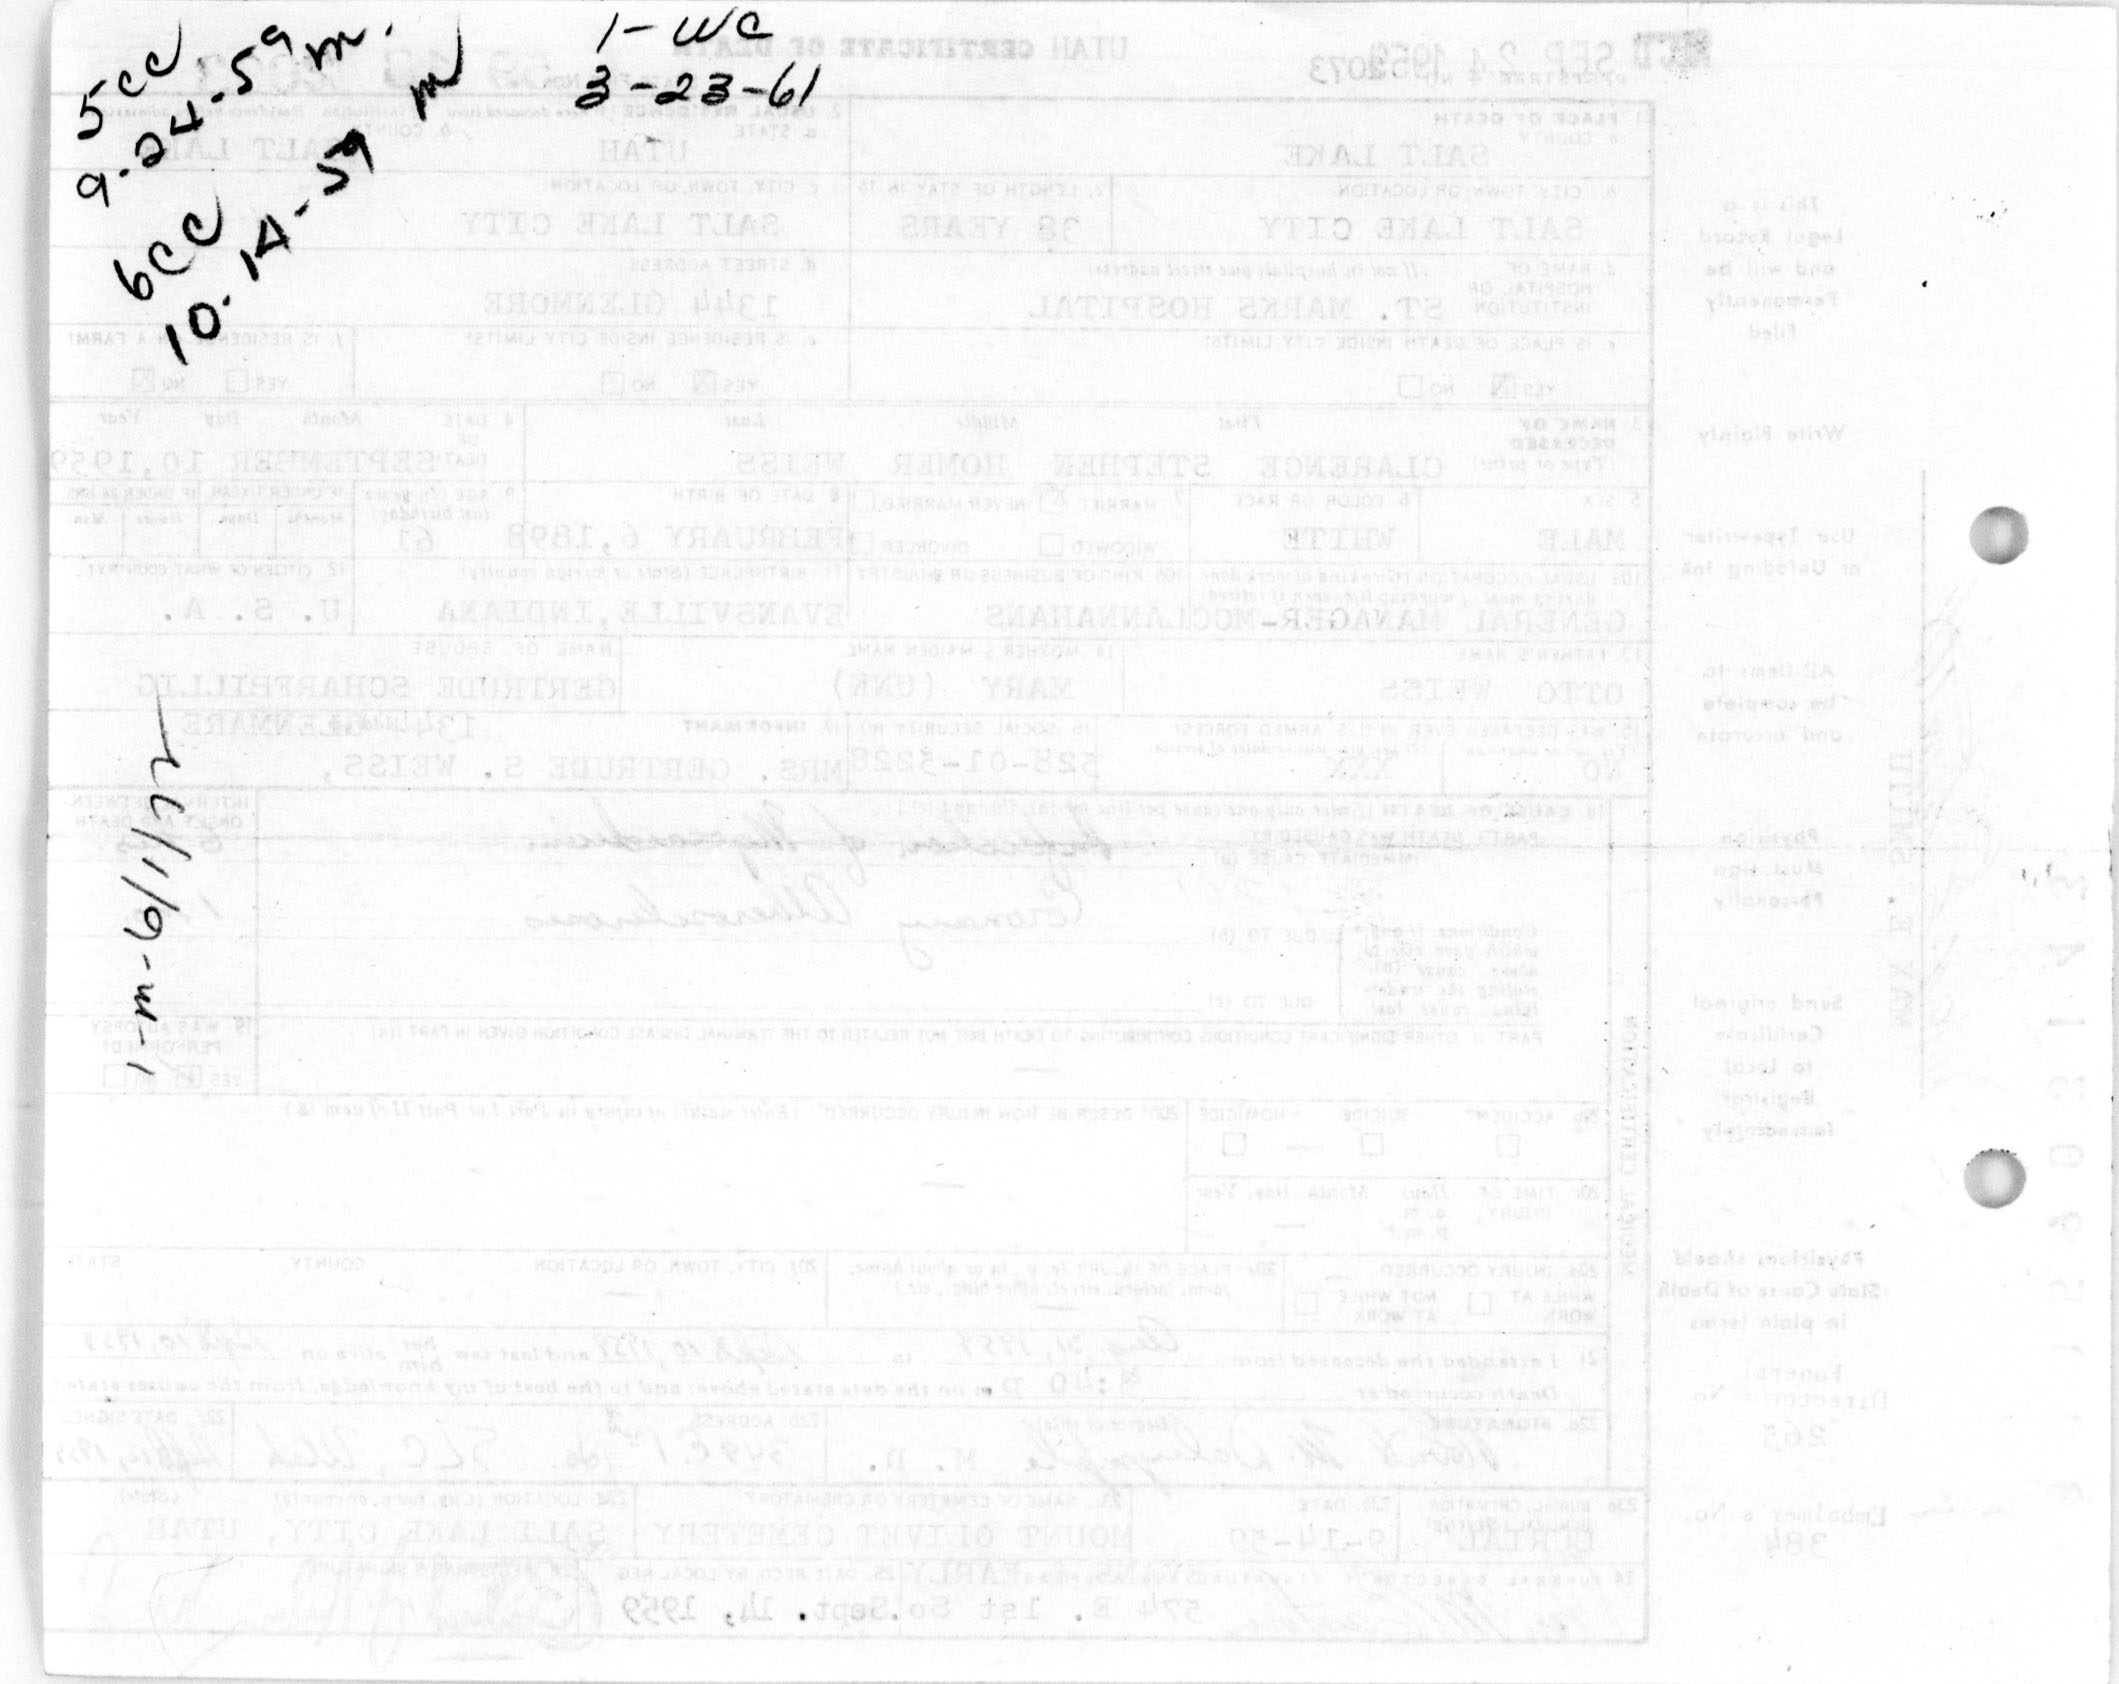 5cc
9-24-59 m.
6cc
10-14-59 m
1-WC
3-23-61
1-m-6/1/72
UTAH CERTIFICATE OF DEATH
SEP 24 1959
2073
1. PLACE OF DEATH
a. COUNTY
SALT LAKE
2. USUAL RESIDENCE
a. STATE
UTAH
b. COUNTY
SALT LAKE
b. CITY, TOWN, OR LOCATION
SALT LAKE CITY
c. LENGTH OF STAY IN 1b
38 YEARS
c. CITY, TOWN, OR LOCATION
SALT LAKE CITY
d. NAME OF HOSPITAL OR INSTITUTION (If not in hospital, give street address)
ST. MARKS HOSPITAL
d. STREET ADDRESS
1344 GLENMORE
e. IS PLACE OF DEATH INSIDE CITY LIMITS?
YES NO
e. IS RESIDENCE INSIDE CITY LIMITS?
YES NO
f. IS RESIDENCE ON A FARM?
YES NO
3. NAME OF DECEASED (Type or print)
First Middle Last
CLARENCE STEPHEN HOMER WEISS
4. DATE OF DEATH
Month Day Year
SEPTEMBER 10,1959
5. SEX
MALE
6. COLOR OR RACE
WHITE
7. MARRIED NEVER MARRIED
WIDOWED DIVORCED
8. DATE OF BIRTH
FEBRUARY 6,1898
9. AGE (In years last birthday)
61
IF UNDER 1 YEAR
Months Days
IF UNDER 24 HRS.
Hours Min.
10a. USUAL OCCUPATION (Give kind of work done during most of working life, even if retired)
10b. KIND OF BUSINESS OR INDUSTRY
GENERAL MANAGER-MCCLANNAHANS
11. BIRTHPLACE (State or foreign country)
EVANSVILLE,INDIANA
12. CITIZEN OF WHAT COUNTRY?
U. S. A.
13. FATHER'S NAME
OTTO WEISS
14. MOTHER'S MAIDEN NAME
MARY (UNK)
NAME OF SPOUSE
GERTRUDE SCHARFBILLIG
15. WAS DECEASED EVER IN U.S. ARMED FORCES?
NO XXX
16. SOCIAL SECURITY NO.
528-01-3228
17. INFORMANT
1344 GLENMARE,
MRS. GERTRUDE S. WEISS,
18. CAUSE OF DEATH [Enter only one cause per line for (a), (b), and (c).]
PART I. DEATH WAS CAUSED BY:
IMMEDIATE CAUSE (a)
Infarction of Myocardium
INTERVAL BETWEEN ONSET AND DEATH
Conditions, if any, which gave rise to above cause (a), stating the underlying cause last.
DUE TO (b)
Coronary Atherosclerosis
DUE TO (c)
PART II. OTHER SIGNIFICANT CONDITIONS CONTRIBUTING TO DEATH BUT NOT RELATED TO THE TERMINAL DISEASE CONDITION GIVEN IN PART I(a)
19. WAS AUTOPSY PERFORMED?
YES NO
20a. ACCIDENT SUICIDE HOMICIDE
20b. DESCRIBE HOW INJURY OCCURRED. (Enter nature of injury in Part I or Part II of item 18.)
20c. TIME OF INJURY
Hour Month, Day, Year
a. m.
p. m.
20d. INJURY OCCURRED
WHILE AT WORK NOT WHILE AT WORK
20e. PLACE OF INJURY (e.g., in or about home, farm, factory, street, office bldg., etc.)
20f. CITY, TOWN, OR LOCATION COUNTY STATE
21. I attended the deceased from Aug 31, 1959 to Sept 10, 1959 and last saw her him alive on Sept 10, 1959
Death occurred at :40 p m on the date stated above; and to the best of my knowledge, from the causes stated.
22a. SIGNATURE (Degree or title)
M. D.
22b. ADDRESS
349 E. 1st So. SLC, Utah
22c. DATE SIGNED
23a. BURIAL, CREMATION, REMOVAL (Specify)
BURIAL
23b. DATE
9-14-59
23c. NAME OF CEMETERY OR CREMATORY
MOUNT OLIVET CEMETERY
23d. LOCATION (City, town, or county) (State)
SALT LAKE CITY, UTAH
24. FUNERAL DIRECTOR
EVANS & EARLY
574 E. 1st So.
25. DATE RECD BY LOCAL REG.
Sept. 14, 1959
26. REGISTRAR'S SIGNATURE
MEDICAL CERTIFICATION
This is a
Legal Record
and will be
Permanently
Filed
Write Plainly
Use Typewriter
or Unfading Ink
All Items to
be complete
and accurate
Physician
Must Sign
Personally
Send original
Certificate
to Local
Registrar
Immediately
Physicians should
State Cause of Death
in plain terms
Funeral
Director's No.
265
Embalmer's No.
384
MAY E. SMITH